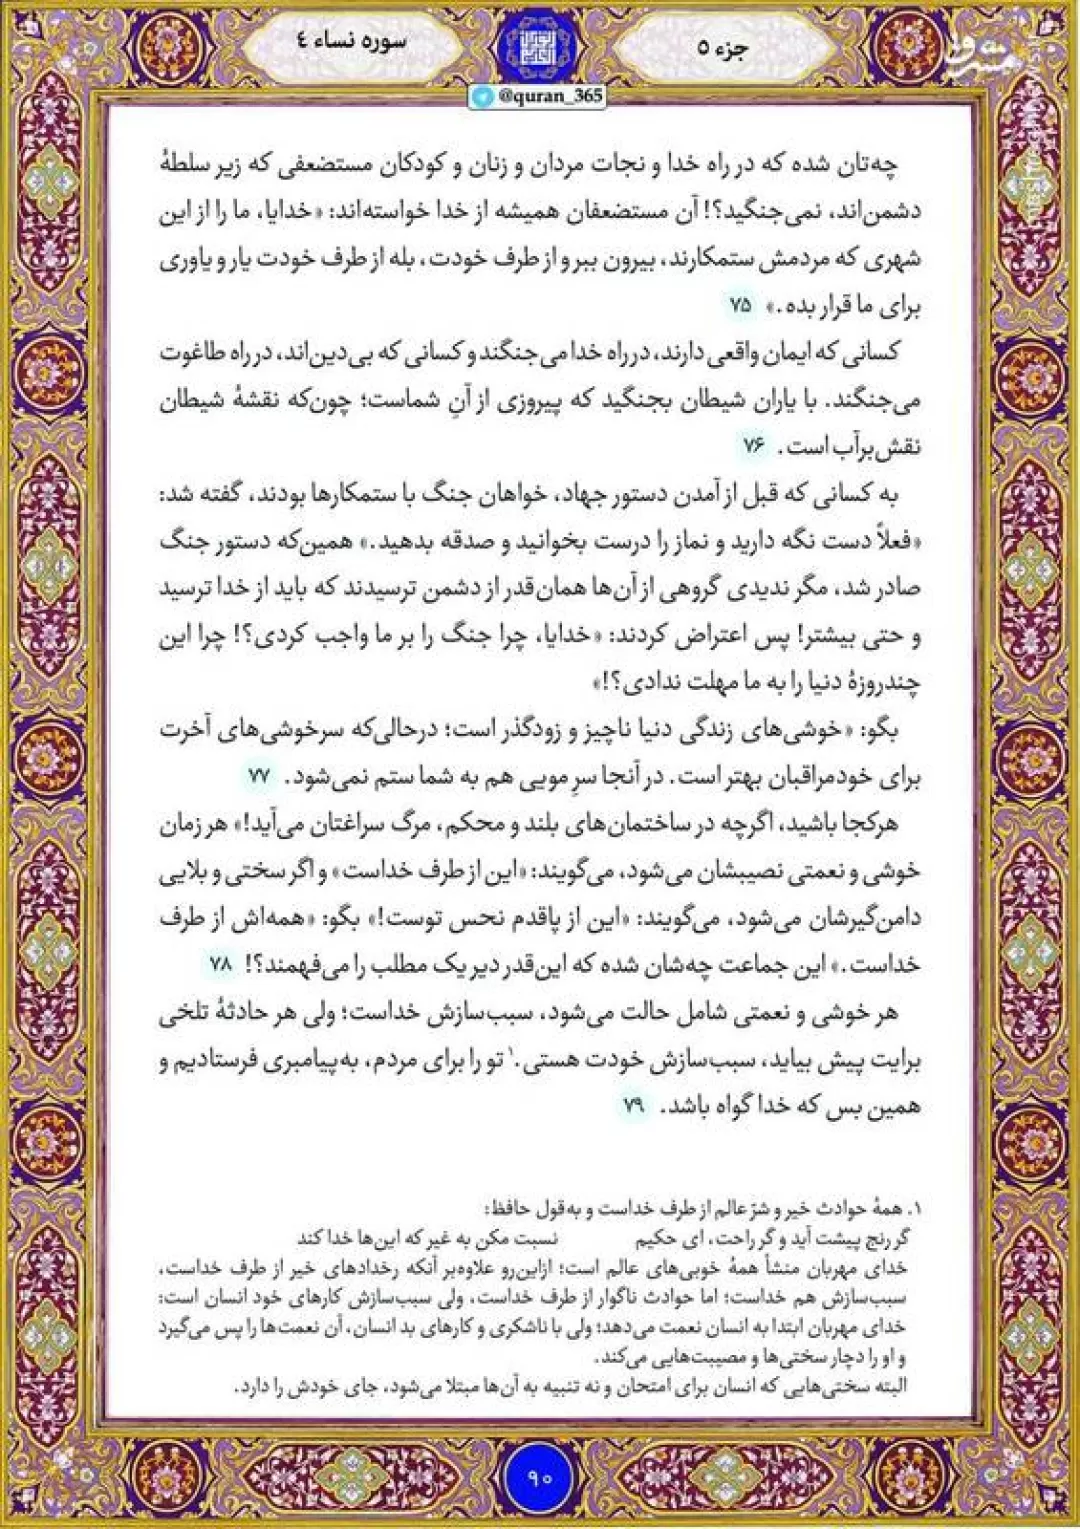 جزء ۵
سوره نساء ۴
@quran_365
مشرق
چه‌تان شده که در راه خدا و نجات مردان و زنان و کودکان مستضعفی که زیر سلطهٔ
دشمن‌اند، نمی‌جنگید؟! آن مستضعفان همیشه از خدا خواسته‌اند: «خدایا، ما را از این
شهری که مردمش ستمکارند، بیرون ببر و از طرف خودت، بله از طرف خودت یار و یاوری
برای ما قرار بده.» ۷۵
کسانی که ایمان واقعی دارند، در راه خدا می‌جنگند و کسانی که بی‌دین‌اند، در راه طاغوت
می‌جنگند. با یاران شیطان بجنگید که پیروزی از آنِ شماست؛ چون‌که نقشهٔ شیطان
نقش‌برآب است. ۷۶
به کسانی که قبل از آمدن دستور جهاد، خواهان جنگ با ستمکارها بودند، گفته شد:
«فعلاً دست نگه دارید و نماز را درست بخوانید و صدقه بدهید.» همین‌که دستور جنگ
صادر شد، مگر ندیدی گروهی از آن‌ها همان‌قدر از دشمن ترسیدند که باید از خدا ترسید
و حتی بیشتر! پس اعتراض کردند: «خدایا، چرا جنگ را بر ما واجب کردی؟! چرا این
چندروزهٔ دنیا را به ما مهلت ندادی؟!»
بگو: «خوشی‌های زندگی دنیا ناچیز و زودگذر است؛ درحالی‌که سرخوشی‌های آخرت
برای خودمراقبان بهتر است. در آنجا سرِ مویی هم به شما ستم نمی‌شود. ۷۷
هرکجا باشید، اگرچه در ساختمان‌های بلند و محکم، مرگ سراغتان می‌آید!» هر زمان
خوشی و نعمتی نصیبشان می‌شود، می‌گویند: «این از طرف خداست» و اگر سختی و بلایی
دامن‌گیرشان می‌شود، می‌گویند: «این از پاقدم نحس توست!» بگو: «همه‌اش از طرف
خداست.» این جماعت چه‌شان شده که این‌قدر دیر یک مطلب را می‌فهمند؟! ۷۸
هر خوشی و نعمتی شامل حالت می‌شود، سبب‌سازش خداست؛ ولی هر حادثهٔ تلخی
برایت پیش بیاید، سبب‌سازش خودت هستی.۱ تو را برای مردم، به‌پیامبری فرستادیم و
همین بس که خدا گواه باشد. ۷۹
۱. همهٔ حوادث خیر و شرّ عالم از طرف خداست و به‌قول حافظ:
گر رنج پیشت آید و گر راحت، ای حکیم نسبت مکن به غیر که این‌ها خدا کند
خدای مهربان منشأ همهٔ خوبی‌های عالم است؛ ازاین‌رو علاوه‌بر آنکه رخدادهای خیر از طرف خداست،
سبب‌سازش هم خداست؛ اما حوادث ناگوار از طرف خداست، ولی سبب‌سازش کارهای خود انسان است:
خدای مهربان ابتدا به انسان نعمت می‌دهد؛ ولی با ناشکری و کارهای بد انسان، آن نعمت‌ها را پس می‌گیرد
و او را دچار سختی‌ها و مصیبت‌هایی می‌کند.
البته سختی‌هایی که انسان برای امتحان و نه تنبیه به آن‌ها مبتلا می‌شود، جای خودش را دارد.
۹۰